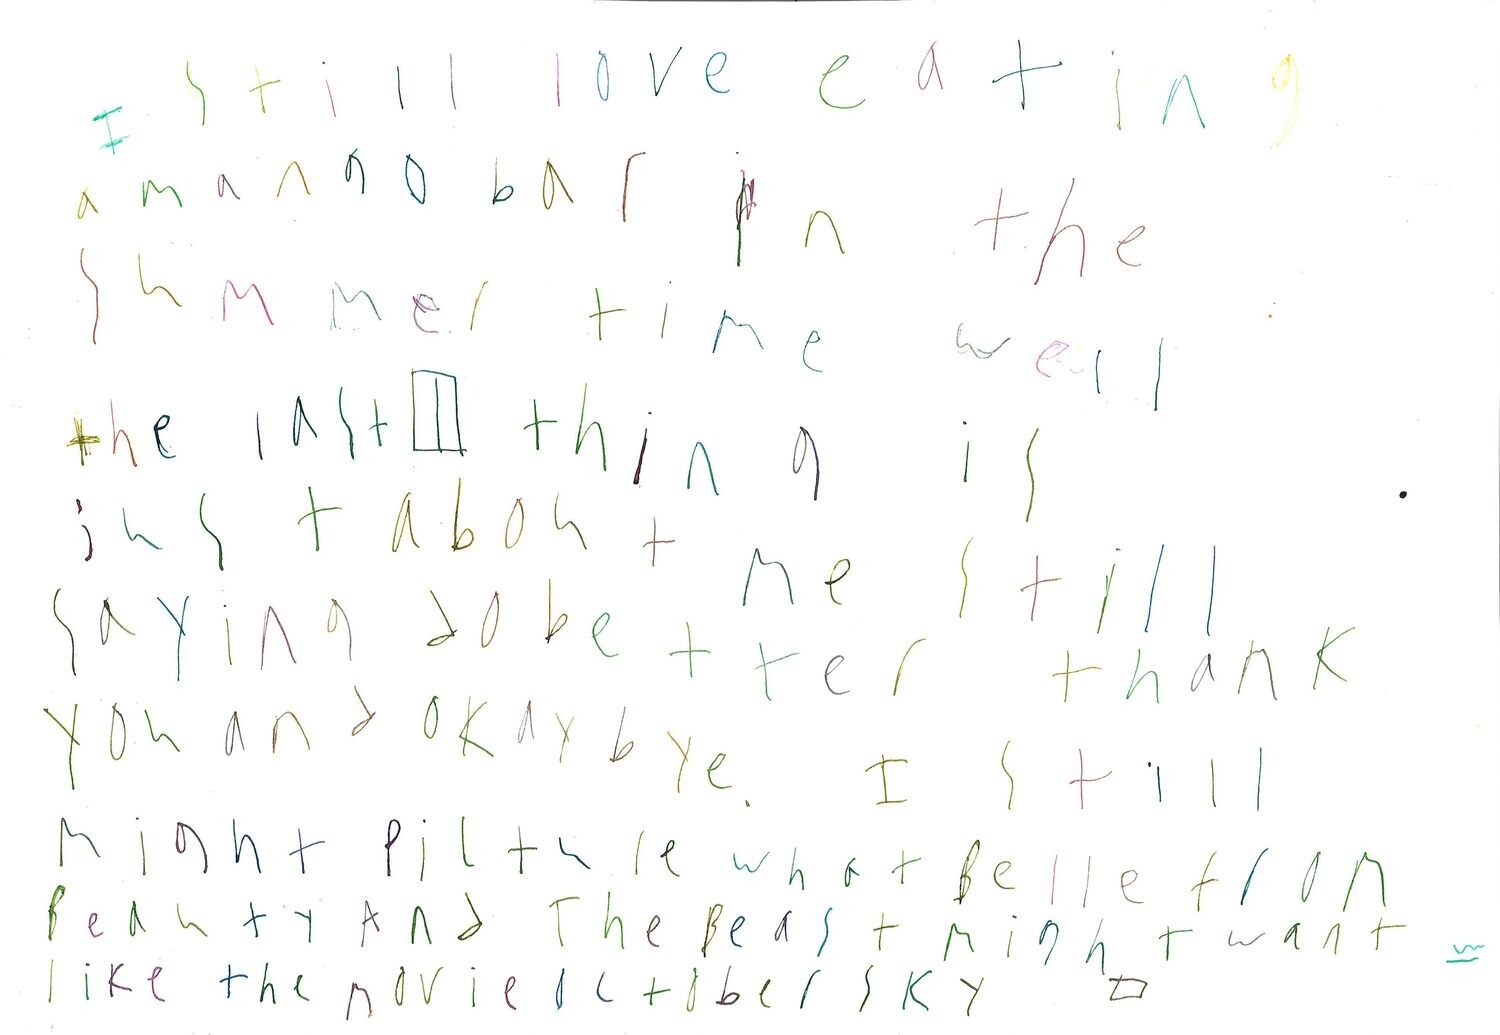 I still love eating
a mango bar in the
summer time well
the last thing is
just about me still
saying do better thank
you and okay bye. I still
might picture what Belle from
Beauty And The Beast might want
like the movie october sky